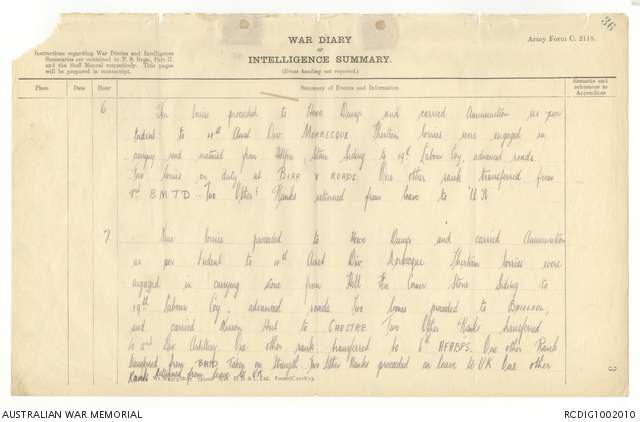 36
WAR DIARY
or
INTELLIGENCE SUMMARY.
(Erase heading not required.)
Army Form C. 2118.
Instructions regarding War Diaries and Intelligence
Summaries are contained in F. S. Regs., Part II.
and the Staff Manual respectively. Title pages
will be prepared in manuscript.
Place Date Hour Summary of Events and Information Remarks and references to Appendices
6 lorries proceeded to Howe Dump and carried Ammunition as per
Indent to Aust Div MORBESQUE Thirteen lorries were engaged in
carrying road material from Stone Siding to 19th Labour Coy advanced roads
Two lorries on duty at BIRR X ROADS. One other rank transferred from
BMTD. Two Other Ranks returned from leave to U K
7 Nine lorries proceeded to Howe Dump and carried Ammunition
as per Indent to Aust Div Morbecque Thirteen lorries were
engaged in carrying stone from Hell Fire Corner Stone Siding to
19th Labour Coy, advanced roads. Two lorries proceeded to
and carried to CAESTRE Two Other Ranks transferred
to 2nd Div Artillery One other rank transferred to 6th AFABPS. One other Rank
transferred from BMTD Taken on Strength. Two Other Ranks proceeded on leave to UK One other
Ranks returned from leave to UK
3
AUSTRALIAN WAR MEMORIAL
RCDIG1002010